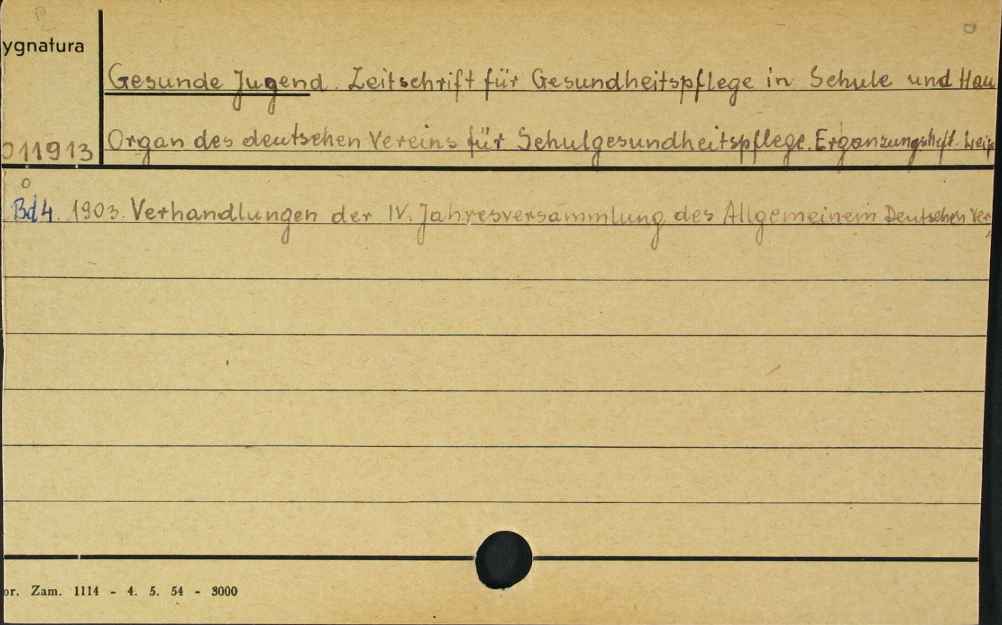 ygnatura
Gesunde Jugend. Zeitschrift für Gesundheitspflege in Schule und Hau
011913 Organ des deutschen Vereins für Schulgesundheitspflege. Ergänzungsheft. Leip
Bd4. 1903. Verhandlungen der IV. Jahresversammlung des Allgemeinem Deutschen Ver
or. Zam. 1114 - 4. 5. 54 - 3000